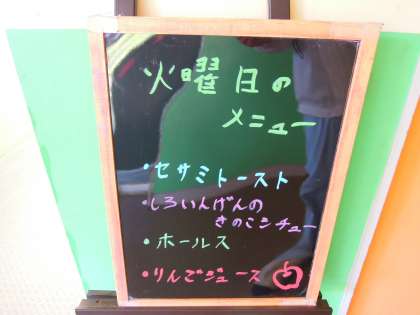 火曜日の
メニュー
・セサミトースト
・しろいんげんの
きのこシチュー
・ホールス
・りんごジュース